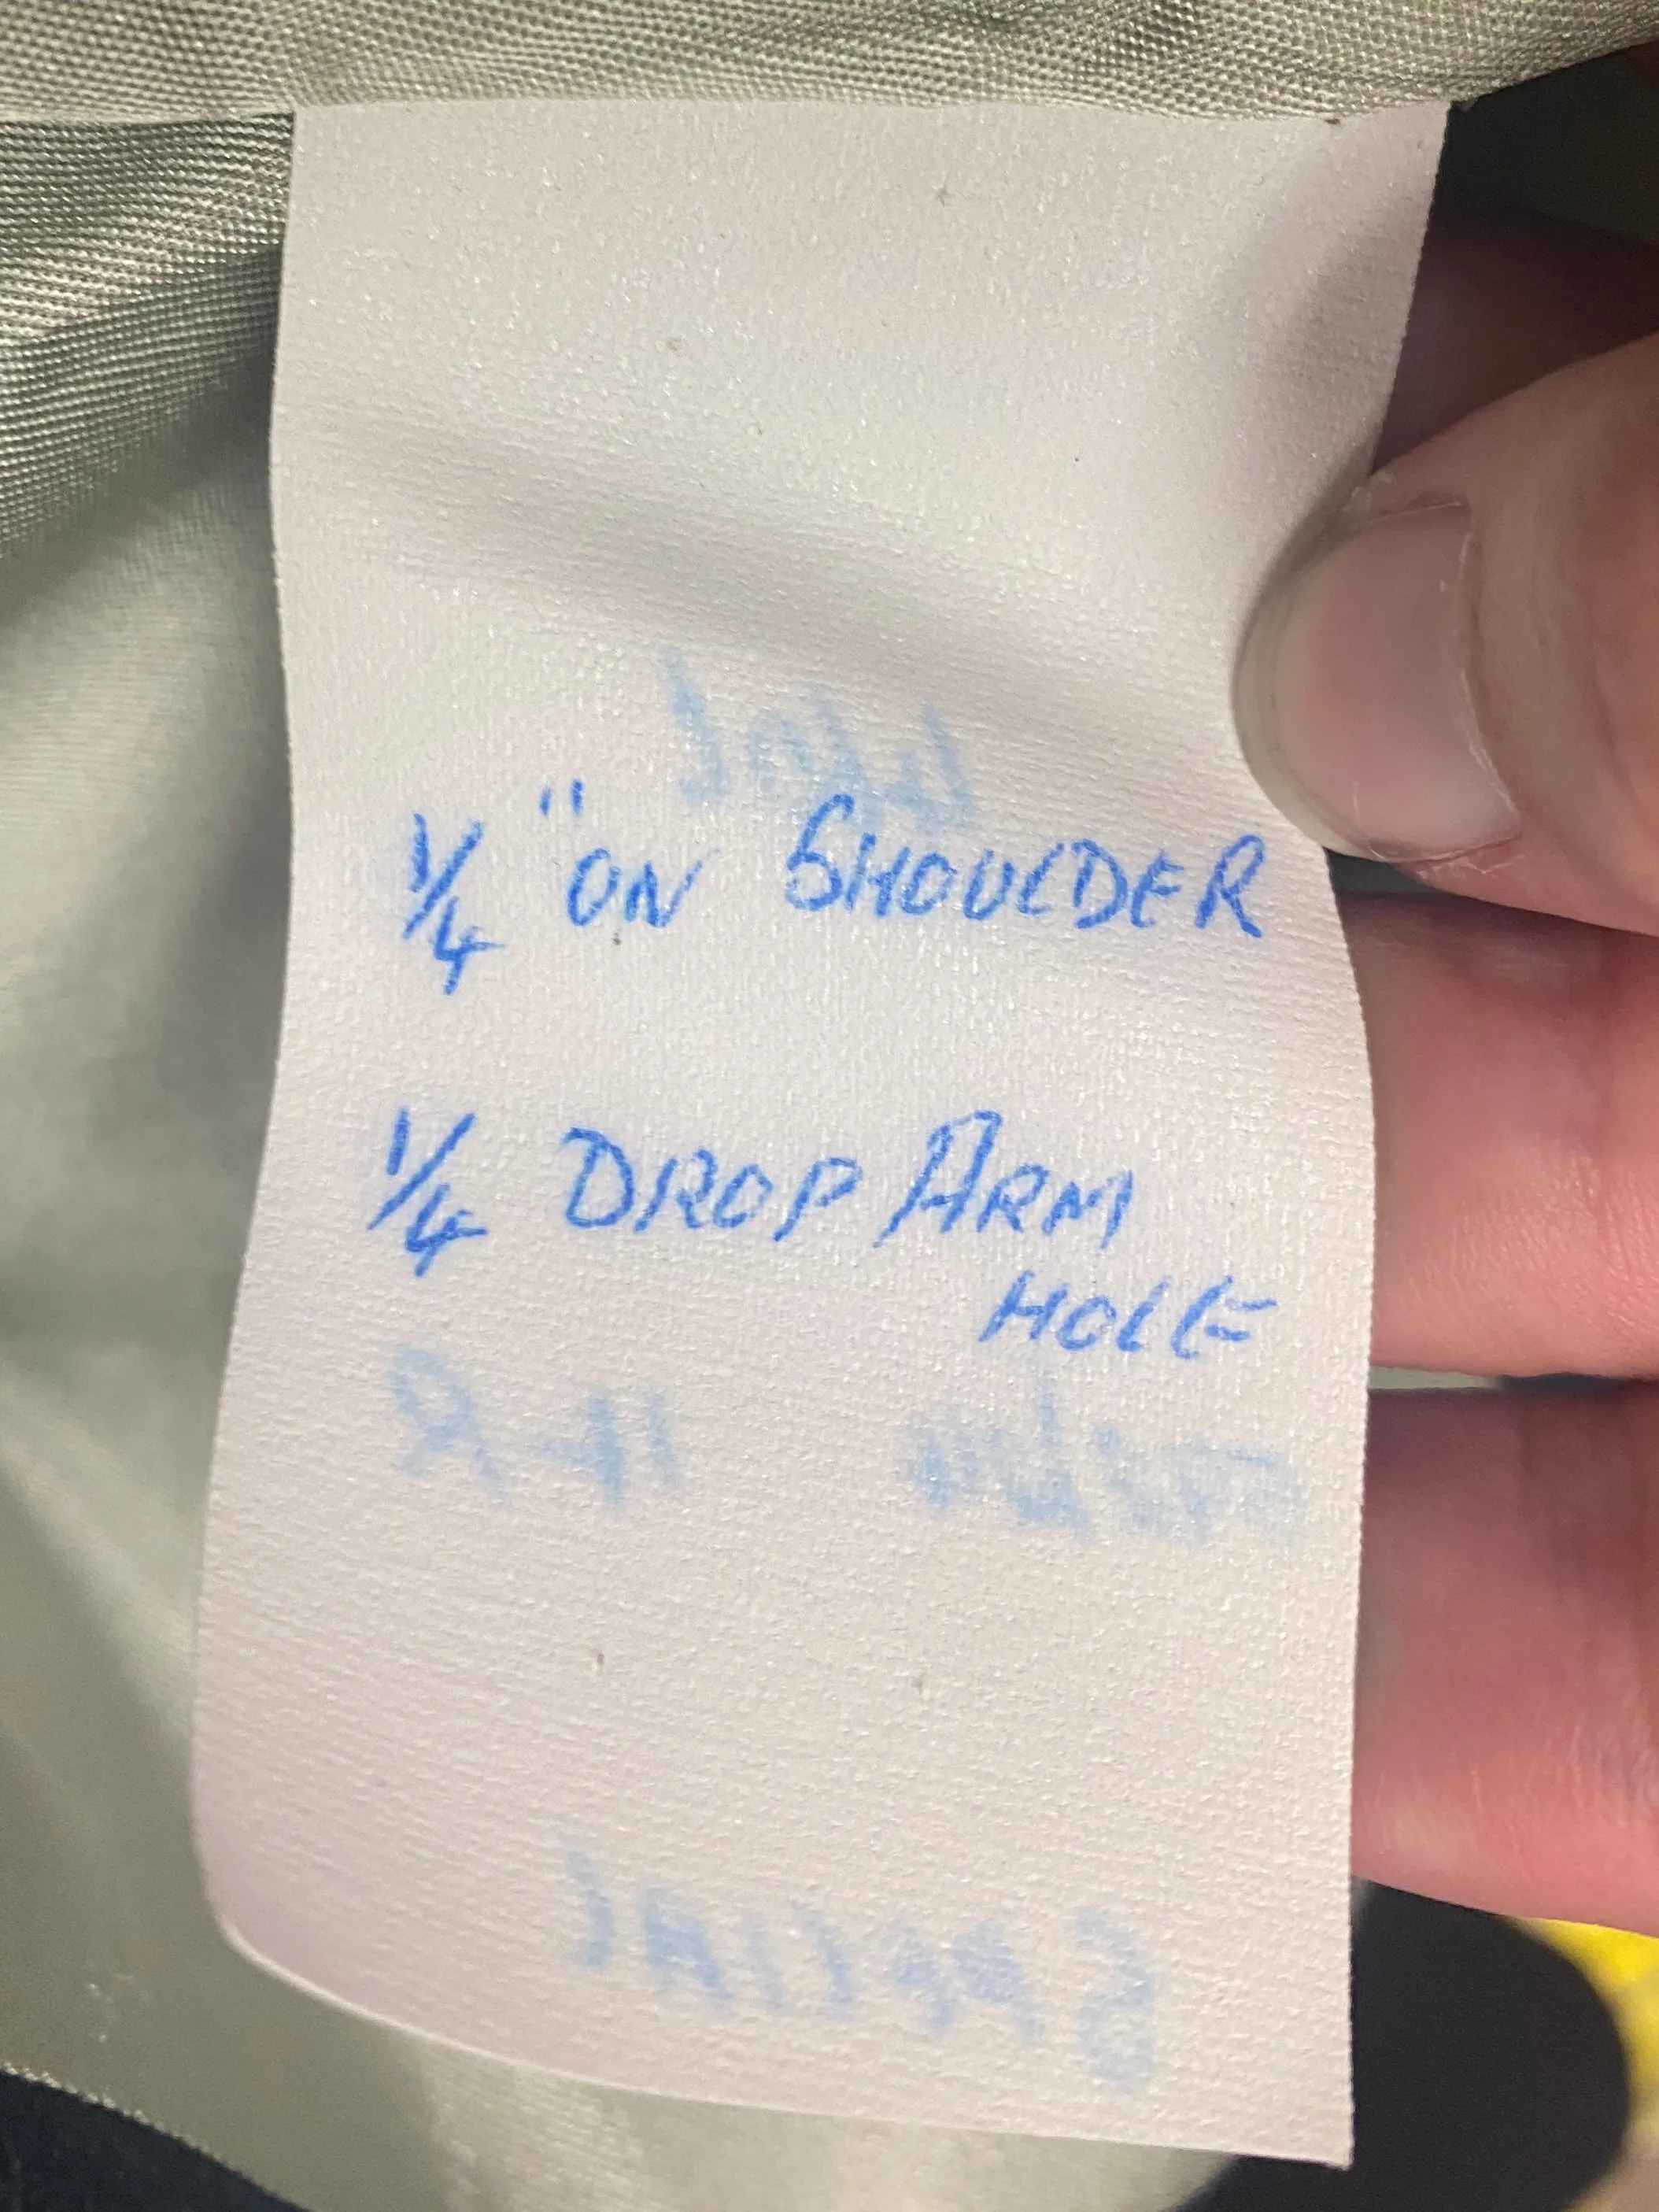 1/4 " ON SHOULDER
1/4 DROP ARM
HOLE
SPECIAL